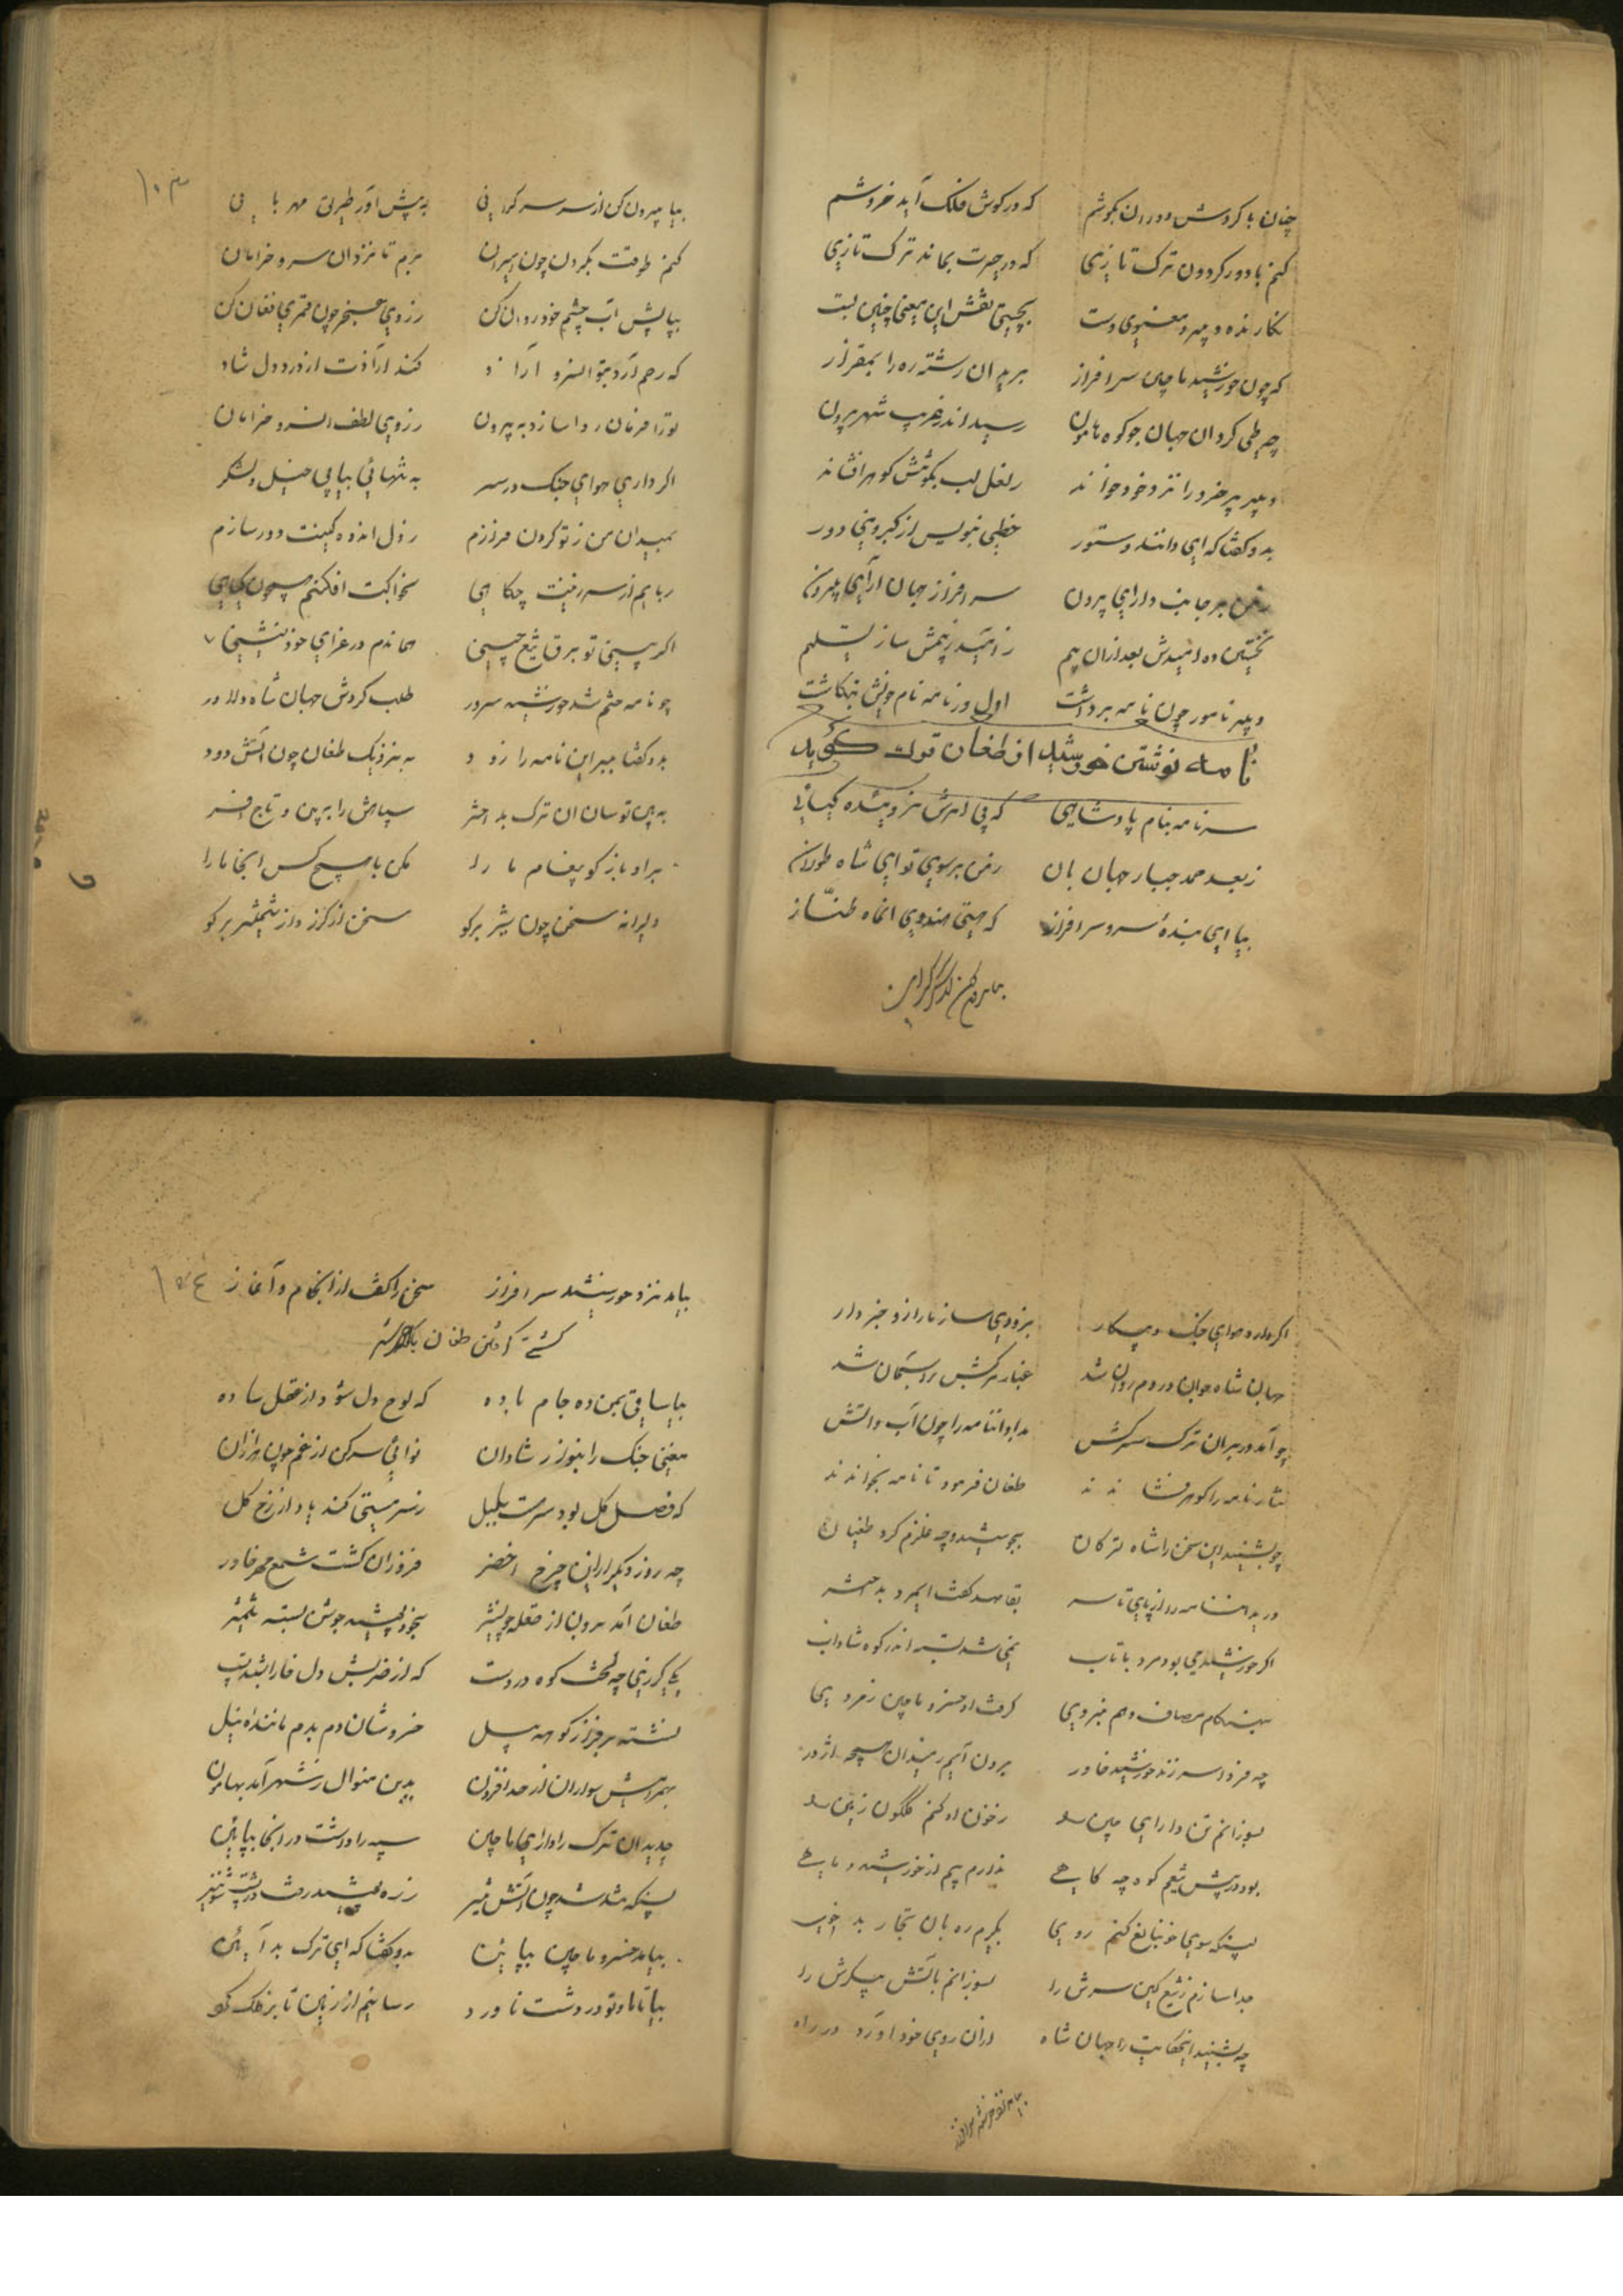 چنان با کردش دوران بکوشم که در کوش فلک آید خروشم
کنم با دور کردون ترک تازی که در حیرت بماند ترک تازی
نکارنده دبیر معنوی دست بچستی نقش این معنی چنین بست
که چون خورشید ماچین سرافراز برید ان رشته ره را بمقراز
چه طی کرد ان جهان جو کوه هامون رسید اندر غریب شهر بیرون
دبیر پیر خرد را نزد خود خواند ز لعل لب بکوشش کوهر افشاند
بدو کفتا که ای داننده دستور خطی بنویس از کبر و منی دور
ز من بر جانب دارای بیرون سرافراز جهان آرای بیرون
نخستین ده امیدش بعد ازان بیم ز امید و بیمش ساز تسلیم
دبیر نامور چون نامه برداشت اول در نامه نام خویش بنکاشت
نامه نوشتن خورشید از طغان ترک کوید
سر نامه بنام پادشاهی که بی امرش نروییده کیاهی
ز بعد حمد جبار جهان بان ز من بر سوی تو ای شاه طولان
بیا ای بنده سرو سرافراز که هستی هندوی انماه طناز
بیا بیرون کن از سر سرکرانی
بیا بیرون کن از سر سرکرانی به پیش آور طریق مهربانی
کنم طوقت بکردن چون اسیران برم تا نزد ان سرو خرامان
بپایش آب چشم خود روان کن ز روی عجز چون قمری فغان کن
که رحم آرد بتو انسرو آزاد کند آزادت از درد دل شاد
تو را فرمان روا سازد به بیرون ز روی لطف انسرو خرامان
اکر داری هوای جنک در سر به تنهائی بیا بی خیل و لشکر
بمیدان من ز تو کردن فرازم ز دل اندوه کینت دور سازم
ربایم از سر زینت چکاهی بخواکت افکنم همچون کیاهی
اکر بینی تو برق تیغ چینی همان دم در عزای خود نشینی
چو نامه ختم شد خورشید سرور طلب کردش جهان شاه دلاور
بدو کفتا ببر این نامه را زود به نزدیک طغان چون آتش و دود
به بین تو سان ان ترک بد اختر سپاهش را ببین و تاج و افسر
براو باز کو پیغام ما را مکن با هیچ کس اینجا مدارا
دلیرانه سخن چون شیر برکو سخن از کرز و از شمشیر برکو
۱۰۳
اکر دارد هوای جنک و پیکار بزودی ساز ما را زو خبردار
جهان شاه جوان در دم روان شد غبار مرکبش بر آسمان شد
چو آمد در بر ان ترک سرکش بداد انامه را چون آب و آتش
نثار نامه را کوهر فشاندند طغان فرمود تا نامه بخواندند
چو بشنید این سخن را شاه ترکان بجوشید و چه قلزم کرد طغیان
درید انامه را از پای تا سر بقاصد کفت ایمرد بد اختر
اکر خورشید می بود مرد با تاب نمی شد بسته اندر کوه شاداب
بهنکام مصاف و هم نبردی کرفت او خسرو ماچین ز مردی
چه فردا سر زند خورشید خاور برون آیم بمیدان همچه اژدر
بسوزانم تن دارای چین را ز خون او کنم کلکون زمین را
بود در پیش تیغم کوه چه کاهی ندارم بیم از خورشید و ماهی
پسنکه سوی ختا نغ کنم روی بکیرم ره بان تجار بد خوی
جدا سازم ز تیغ کین سرش را بسوزانم باتش پیکرش را
چه بشنید اینحکایت را جهان شاه ازان روی خود آورد در راه
بیامد نزد خورشید سرافراز
بیامد نزد خورشید سرافراز سخن را کفت از انجام و آغاز ۱۰۴
کشتی کرفتن طغان با خورشید
بیا ساقی بمن ده جام باده که لوح دل شود از عقل ساده
مغنی چنک را بنواز شادان نوائی سر کن از غم چون هزاران
که فصل کل بود سرمست بلبل ز سر مستی کند باد از رخ کل
چه روز دیکر از این چرخ اخضر فروزان کشت شمع مهر خاور
طغان آمد برون از قلعه چون شیر بخود پوشید جوشن بسته شمشیر
یکی کرزی چه لخت کوه در دست که از ضربش دل خارا شدی پست
نشسته بر فراز کوهه پیل خروشان دم بدم مانند نیل
بهمراهش سواران از حد افزون بدین منوال ز شهر آمد بهامون
چه دید ان ترک را دارای ماچین سپه را داشت در انجا بپائین
پسنکه شد شد چون آتش تیز زره پوشید رفت در پشت شبدیز
بیامد خسرو ماچین بپائین بدو کفتا که ای ترک بد آیین
بیا تا ما و تو در دشت ناورد رسانیم از زمین تا بر فلک کرد